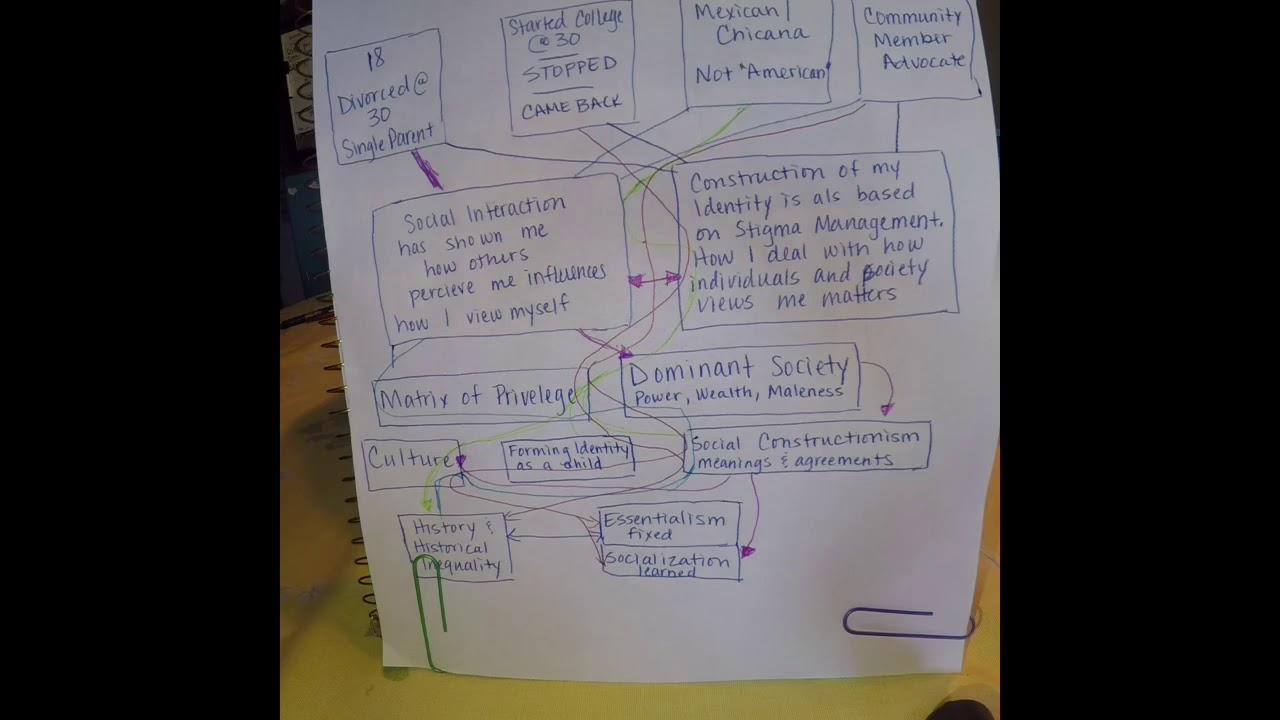 18
Divorced @
30
Single Parent
Started College
@ 30
STOPPED
CAME BACK
Mexican/
Chicana
Not "American"
Community
Member
Advocate
Social Interaction
has shown me
how others
percieve me influences
how I view myself
Construction of my
Identity is als based
on Stigma Management.
How I deal with how
individuals and society
views me matters
Matrix of Privelege
Dominant Society
Power, Wealth, Maleness
Culture
Forming Identity
as a child
Social Constructionism
meanings & agreements
History &
Historical
Inequality
Essentialism
fixed
Socialization
learned